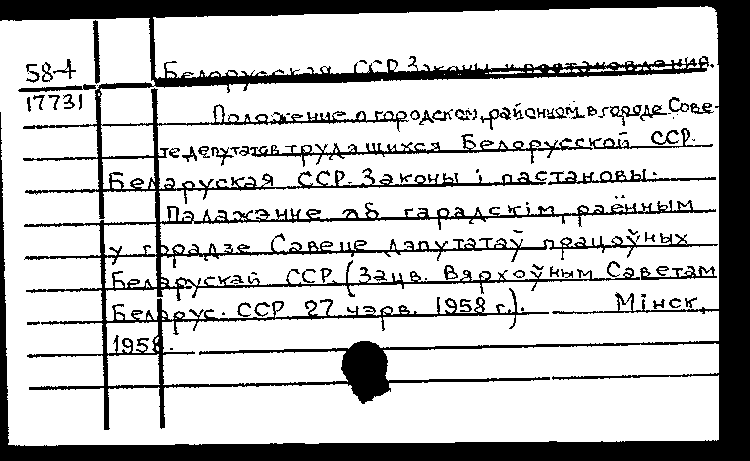 58-4
Белорусская ССР. Законы и постановления.
17731
Положение о городском, районном, в городе Сове-
те депутатов трудящихся Белорусской ССР.
Беларуская ССР. Законы і пастановы.
Палажэнне аб гарадскім, раённым
у горадзе Савеце дэпутатаў працоўных
Беларускай ССР. (Зацв. Вярхоўным Саветам
Беларус. ССР 27 чэрв. 1958 г.). Мінск,
1958.